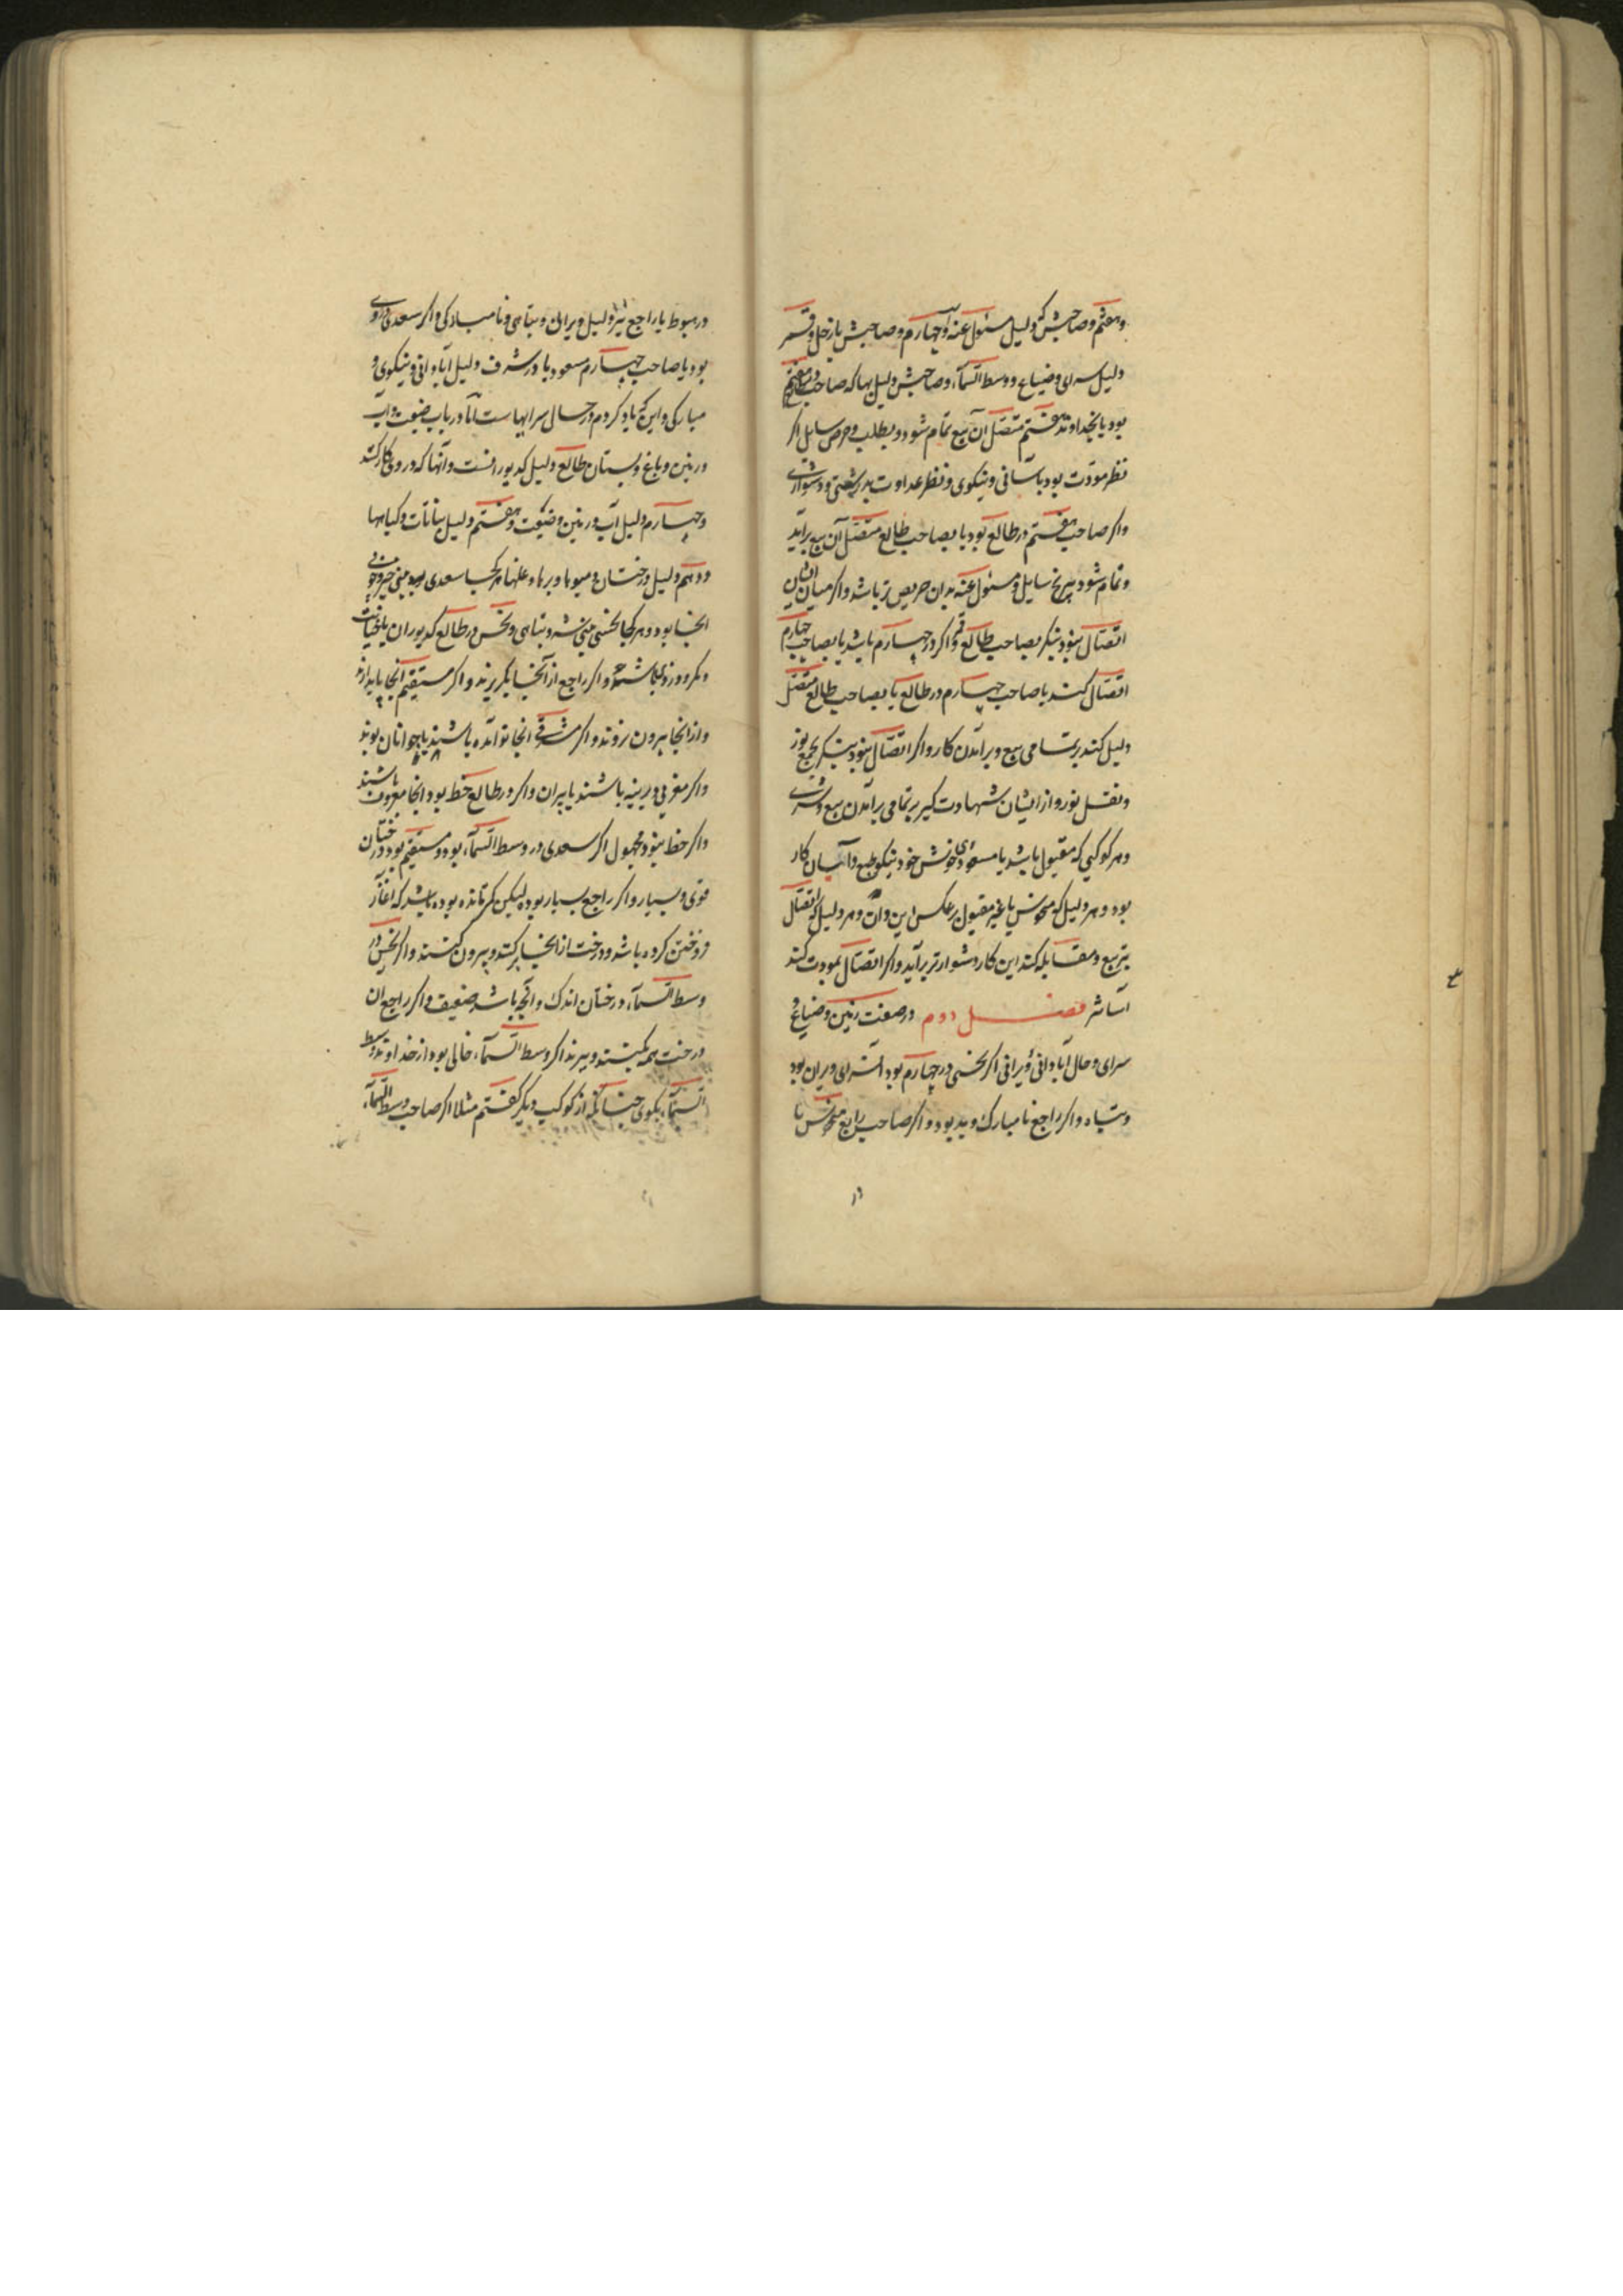 وهفتم و صاحبش که دلیل مسئول عنه و چهارم و صاحبش با زحل و قمر
دلیل سرای وضیاع و وسط السماء و صاحبش دلیل بها که صاحب
بود یا بخداوند هفتم متصل آن بیع تمام شود و بطلب وحرص سایل اکر
نظر مودت بود بآسانی و نیکوی و نظر عداوت بدرشتی و دشواری
واکر صاحب هفتم در طالع بود یا بصاحب طالع متصل آن بیع برآید
وتمام شود بی رنج سایل و مسئول عنه بدان حریص تر باشد واکر میان ایشان
اتصال نبود بنکر بصاحب طالع و قمر اکر در چهارم باشد یا بصاحب چهارم
اتصال کند یا صاحب چهارم در طالع یا بصاحب طالع متصل
دلیل کند بر تمامی بیع و برآمدن کار واکر اتصال نبود بنکر بجمع نور
ونقل نور و از ایشان شهادت کیر بر تمامی برآمدن بیع وشری
وهر کوکبی که مقبول باشد یا مسعود خوش خو و نیکو طبع و آسان کار
بود وهر دلیل که منحوس یا غیر مقبول بر عکس این دان وهر دلیل که اتصال
بتربیع ومقابله کند این کار دشوارتر برآید واکر اتصال بمودت کند
آسانتر فصل دوم در صفت زمین و ضیاع و
سرای و حال آبادانی و ویرانی اکر نحسی در چهارم بود آن سرای ویران بود
وتباه واکر راجع نامبارک و بد بود و اکر صاحب رابع منحوس یا
در هبوط یا راجع نیز دلیل ویرانی و تباهی و نامبارکی واکر سعدی در وی
بود یا صاحب چهارم مسعود یا در شرف دلیل آبادانی و نیکوی و
مبارکی و این که یاد کردم در حال سرایهاست اما در باب ضیعت و آب
و زمین و باغ و بستان طالع دلیل کدیورانست وآنها که در وی کار کنند
و چهارم دلیل آب و زمین و ضیعت و هفتم دلیل نباتات و کیاهها
و دهم دلیل درختان و میوها و برها و غلها هر کجا سعدی بود یعنی خیر و خوبی
آنجا بود و هر کجا نحسی یعنی شر و تباهی و نحس در طالع کدیوران با خیانت
ومکر و دزدی باشند واکر راجع از آنجا بکریزند واکر مستقیم آنجا پایدارند
واز آنجا بیرون نروند واکر مشرقی آنجا نو آمده باشند یا جوانان بوند
واکر مغربی دیرینه باشند یا پیران واکر در طالع حظ بود آنجا معروف باشند
واکر حظ نبود مجهول اکر سعدی در وسط السماء بود و مستقیم بود درختان
قوی وبسیار واکر راجع بسیار بوده لیکن کم مانده بوده باشد که آغاز
فروختن کرده باشد و درخت از آنجا برکنند و بیرون کشند واکر نحس در
وسط السماء درختان اندک و آنچه باشد ضعیف واکر راجع آن
درخت همه بکشند و ببرند اکر وسط السماء خالی بود از خداوند وسط
السماء بکوی چنانکه از کوکب دیکر کفتم مثلا اکر صاحب وسط السماء